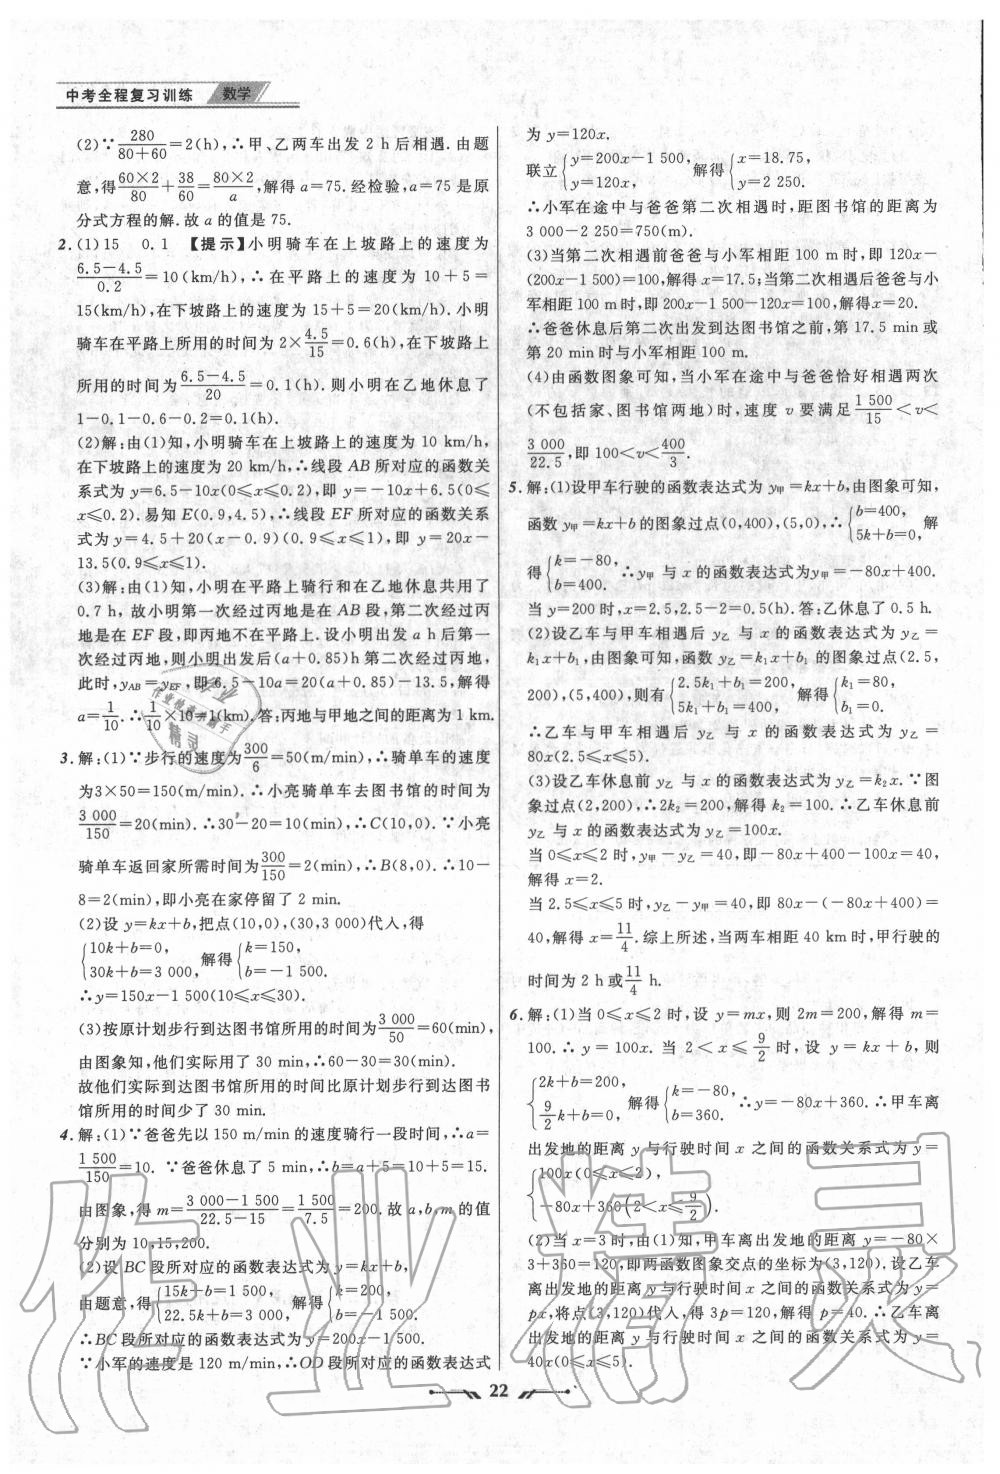 中考全程复习训练 数学
(2)∵280/(80+60)=2(h),∴甲、乙两车出发 2 h 后相遇.由题
意,得(60×2)/80+38/60=(80×2)/a,解得 a=75.经检验,a=75 是原
分式方程的解.故 a 的值是 75.
2. (1)15 0.1 【提示】小明骑车在上坡路上的速度为
(6.5-4.5)/0.2=10(km/h),∴在平路上的速度为 10+5=
15(km/h),在下坡路上的速度为 15+5=20(km/h).小明
骑车在平路上所用的时间为 2×4.5/15=0.6(h),在下坡路上
所用的时间为(6.5-4.5)/20=0.1(h).则小明在乙地休息了
1-0.1-0.6-0.2=0.1(h).
(2)解:由(1)知,小明骑车在上坡路上的速度为 10 km/h,
在下坡路上的速度为 20 km/h,∴线段 AB 所对应的函数关
系式为 y=6.5-10x(0≤x≤0.2),即 y=-10x+6.5(0≤
x≤0.2).易知 E(0.9,4.5),∴线段 EF 所对应的函数关系
式为 y=4.5+20(x-0.9)(0.9≤x≤1),即 y=20x-
13.5(0.9≤x≤1).
(3)解:由(1)知,小明在平路上骑行和在乙地休息共用了
0.7 h,故小明第一次经过丙地是在 AB 段,第二次经过丙
地是在 EF 段,即丙地不在平路上.设小明出发 a h 后第一
次经过丙地,则小明出发后(a+0.85)h 第二次经过丙地,
此时,yAB=yEF,即 6.5-10a=20(a+0.85)-13.5,解得
a=1/10.∴1/10×10=1(km).答:丙地与甲地之间的距离为 1 km.
3. 解:(1)∵步行的速度为300/6=50(m/min),∴骑单车的速度
为3×50=150(m/min).∴小亮骑单车去图书馆的时间为
3 000/150=20(min).∴30-20=10(min),∴C(10,0).∵小亮
骑单车返回家所需时间为300/150=2(min),∴B(8,0),∴10-
8=2(min),即小亮在家停留了 2 min.
(2)设 y=kx+b,把点(10,0),(30,3 000)代人,得
{10k+b=0, 30k+b=3 000, 解得{k=150, b=-1 500.
∴y=150x-1 500(10≤x≤30).
(3)按原计划步行到达图书馆所用的时间为3 000/50=60(min),
由图象知,他们实际用了 30 min,∴60-30=30(min).
故他们实际到达图书馆所用的时间比原计划步行到达图书
馆所用的时间少了 30 min.
4. 解:(1)∵爸爸先以 150 m/min 的速度骑行一段时间,∴a=
1 500/150=10.∵爸爸休息了 5 min,∴b=a+5=10+5=15.
由图象,得 m=(3 000-1 500)/(22.5-15)=1 500/7.5=200.故 a,b,m 的值
分别为 10,15,200.
(2)设 BC 段所对应的函数表达式为 y=kx+b,
由题意,得{15k+b=1 500, 22.5k+b=3 000, 解得{k=200, b=-1 500.
∴BC 段所对应的函数表达式为 y=200x-1 500.
∵小军的速度是 120 m/min,∴OD 段所对应的函数表达式
为 y=120x.
联立{y=200x-1 500, y=120x, 解得{x=18.75, y=2 250.
∴小军在途中与爸爸第二次相遇时,距图书馆的距离为
3 000-2 250=750(m).
(3)当第二次相遇前爸爸与小军相距 100 m时,即 120x-
(200x-1 500)=100,解得 x=17.5;当第二次相遇后爸爸与小
军相距 100 m 时,即 200x-1 500-120x=100,解得 x=20.
∴爸爸休息后第二次出发到达图书馆之前,第 17.5 min 或
第 20 min 时与小军相距 100 m.
(4)由函数图象可知,当小军在途中与爸爸恰好相遇两次
(不包括家、图书馆两地)时,速度 v 要满足1 500/15<v<
3 000/22.5,即 100<v<400/3.
5. 解:(1)设甲车行驶的函数表达式为 y甲=kx+b,由图象可知,
函数 y甲=kx+b 的图象过点(0,400),(5,0),∴{b=400, 5k+b=0, 解
得{k=-80, b=400. ∴y甲 与 x 的函数表达式为y甲=-80x+400.
当 y=200 时,x=2.5,2.5-2=0.5(h).答:乙休息了 0.5 h.
(2)设乙车与甲车相遇后 y乙 与 x 的函数表达式为 y乙=
k1x+b1,由图象可知,函数 y乙=k1x+b1 的图象过点(2.5,
200),(5,400),则有{2.5k1+b1=200, 5k1+b1=400, 解得{k1=80, b1=0.
∴乙车与甲车相遇后 y乙 与 x 的函数表达式为 y乙=
80x(2.5≤x≤5).
(3)设乙车休息前 y乙 与 x 的函数表达式为 y乙=k2x.∵图
象过点(2,200),∴2k2=200,解得 k2=100,∴乙车休息前
y乙 与 x 的函数表达式为 y乙=100x.
当 0≤x≤2 时,y甲-y乙=40,即-80x+400-100x=40,
解得 x=2.
当 2.5≤x≤5 时,y乙-y甲=40,即 80x-(-80x+400)=
40,解得 x=11/4.综上所述,当两车相距 40 km时,甲行驶的
时间为 2 h或11/4 h.
6. 解:(1)当 0≤x≤2 时,设 y=mx,则 2m=200,解得 m=
100.∴y=100x.当 2<x≤9/2 时,设 y=kx+b,则
{2k+b=200, 9/2k+b=0, 解得{k=-80, b=360. ∴y=-80x+360.∴甲车离
出发地的距离 y 与行驶时间 x 之间的函数关系式为 y=
{100x(0≤x≤2), -80x+360(2<x≤9/2).
(2)当 x=3时,由(1)知,甲车离出发地的距离 y=-80×
3+360=120,即两函数图象交点的坐标为(3,120).设乙车
离出发地的距离 y 与行驶时间 x 之间的函数关系式为 y=
px,将点(3,120)代人,得 3p=120,解得 p=40.∴乙车离
出发地的距离 y 与行驶时间 x 之间的函数关系式为 y=
40x(0≤x≤5).
22
作业精灵